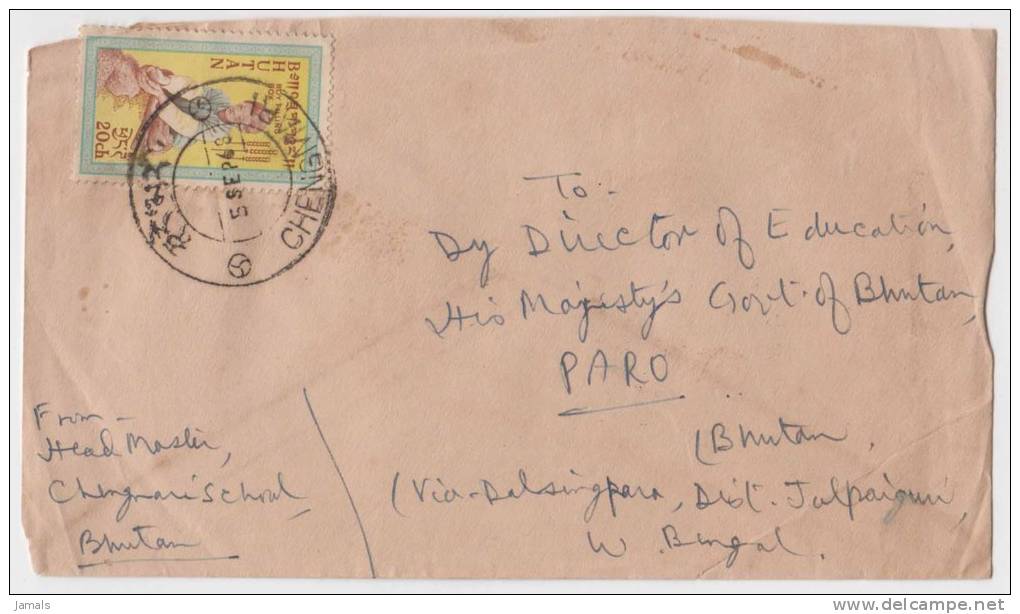 BHUTAN
20ch
5 SEP 68
CHENG
To -
Dy Director of Education,
His Majesty's Govt. of Bhutan,
PARO
(Bhutan,
(Via-Dalsingpara, Dist. Jalpaiguri,
W. Bengal.
From -
Head Master,
Chengmari School,
Bhutan
Jamals
www.delcampe.net